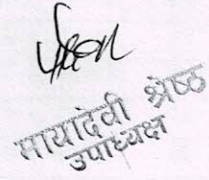 मायादेवी श्रेष्ठ
उपाध्यक्ष